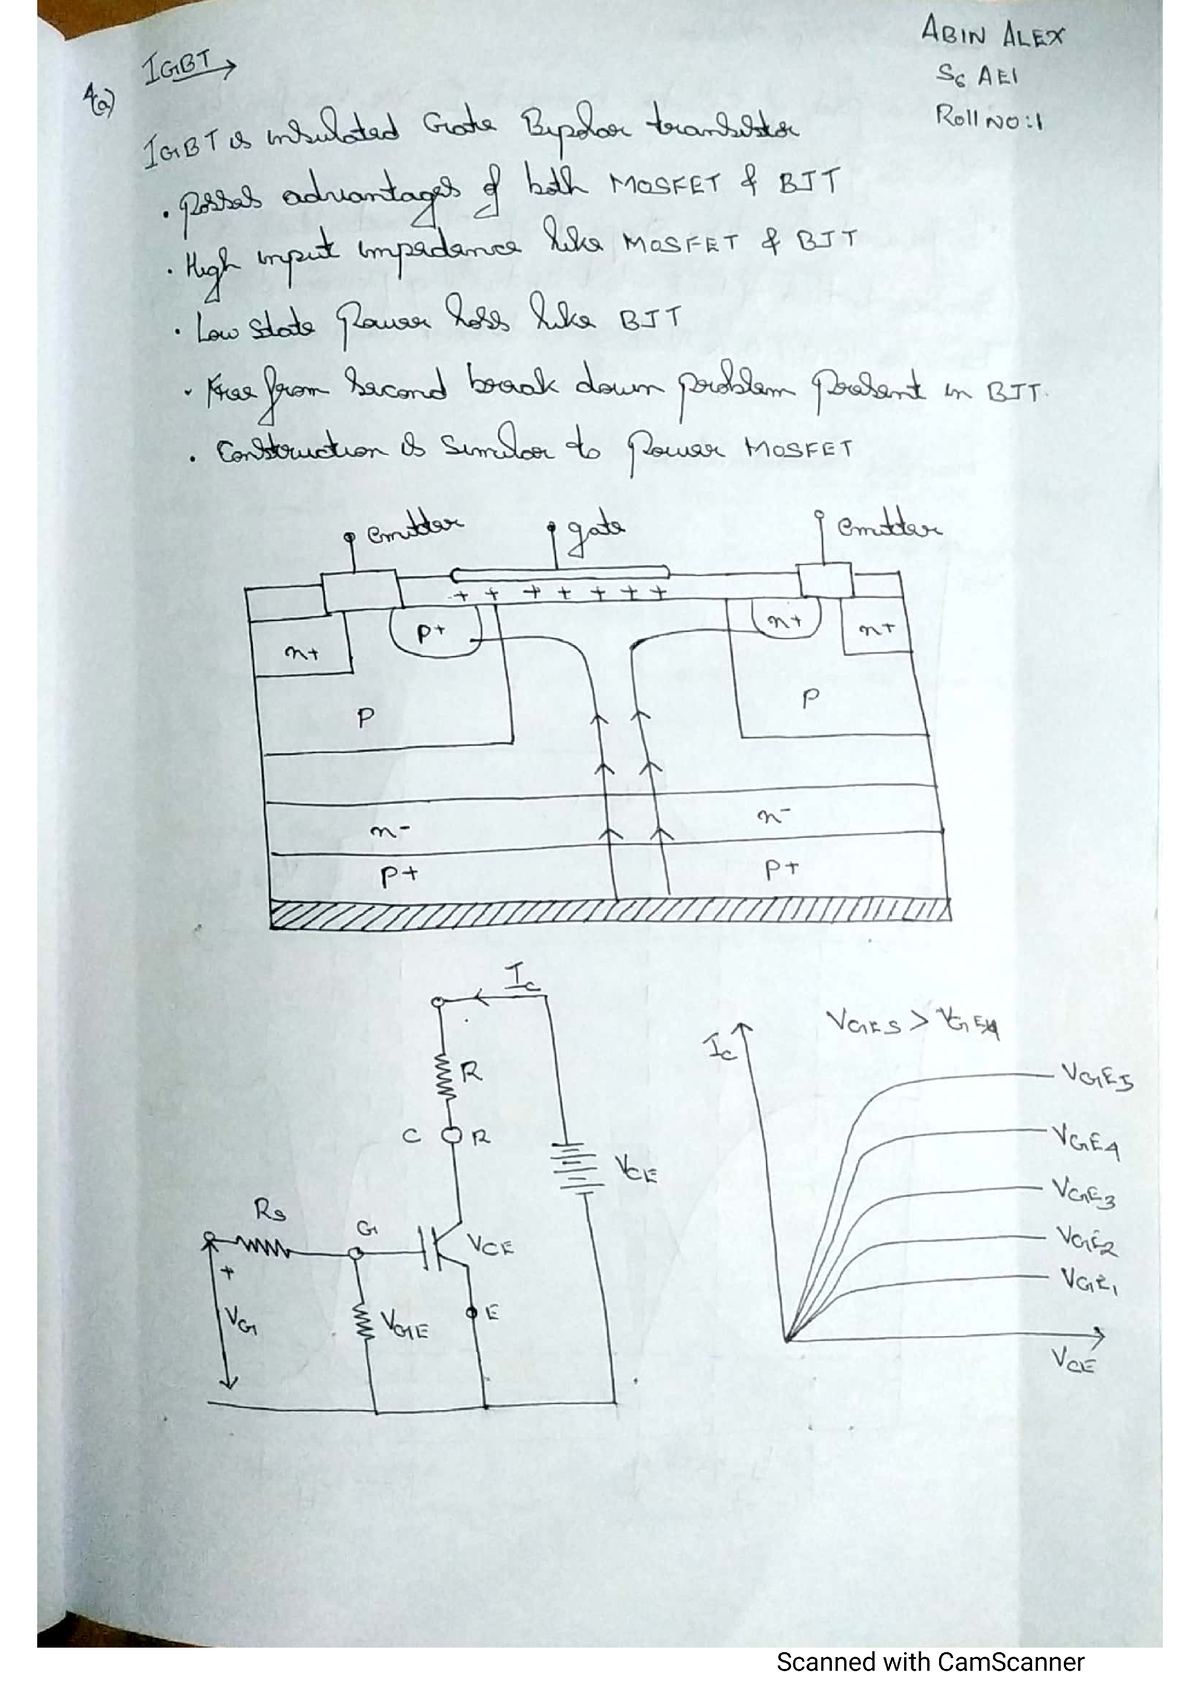 ABIN ALEX
S6 AEI
Roll NO:1
4(a) IGBT →
IGBT is insulated Gate Bipolar transistor
• Posses advantages of both MOSFET & BJT
• High input impedance like MOSFET & BJT
• Low state Power loss like BJT
• Free from second break down problem present in BJT.
• Construction is similar to Power MOSFET
emitter gate emitter
+ + + + + + +
n+ P+ n+ n+
P P
n- n-
P+ P+
Ic
R
C R
VCE
Rs G VCE
+
VG VGE E
VGE5 > VGE4
Ic
VGE5
VGE4
VGE3
VGE2
VGE1
VCE
Scanned with CamScanner